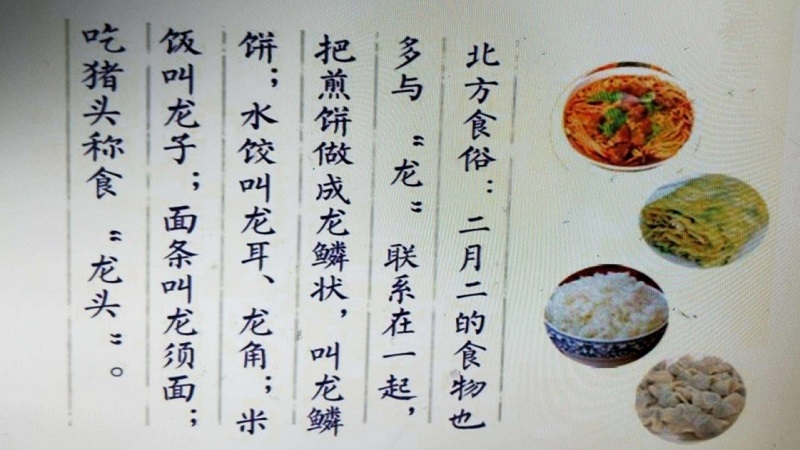 北方食俗：二月二的食物也
多与“龙”联系在一起，
把煎饼做成龙鳞状，叫龙鳞
饼；水饺叫龙耳、龙角；米
饭叫龙子；面条叫龙须面；
吃猪头称食“龙头”。